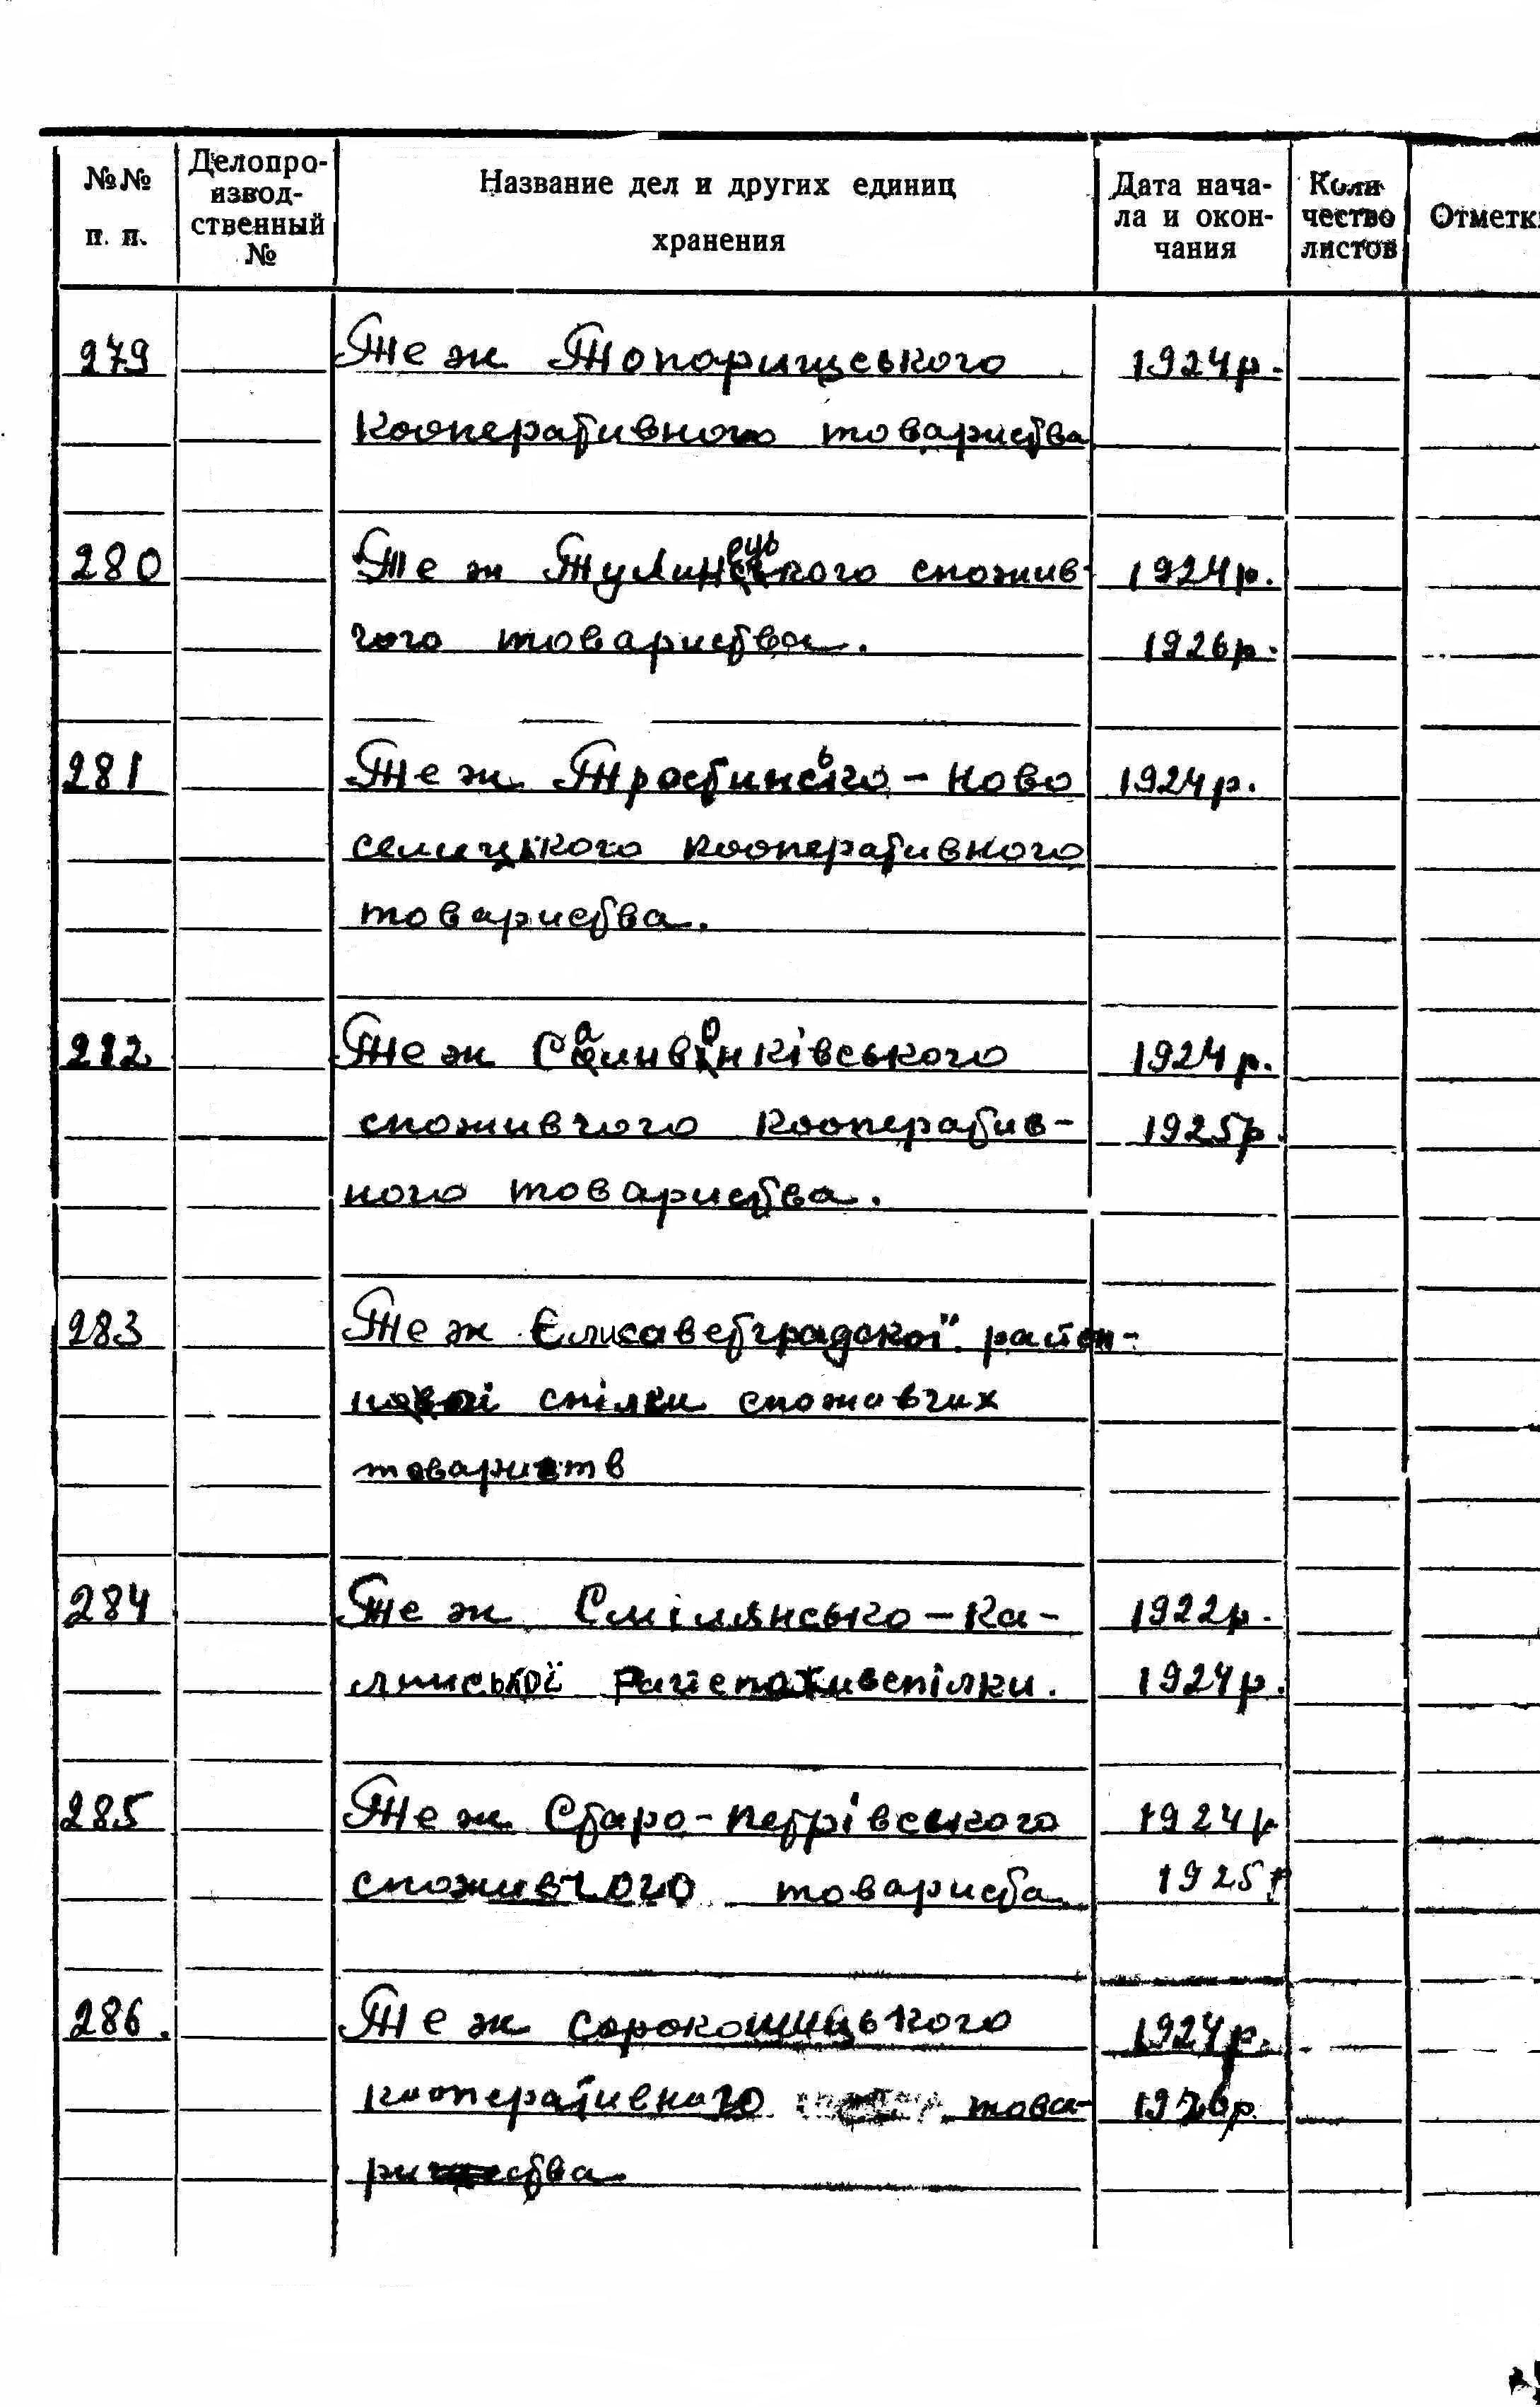 №№ п. п. Делопроизвод-ственный № Название дел и других единиц хранения Дата нача-ла и окон-чания Коли чество листов Отметк
279 Теж Топорищського 1924р.
кооперативного товариства
280 Теж Тулинецького спожив- 1924р.
чого товариства. 1926р.
281 Теж Тростинського - Ново 1924р.
селицького кооперативного
товариства.
282 Теж Саливонківського 1924р.
споживчого кооператив- 1925р.
ного товариства.
283 Теж Єлисаветградської район-
ної спілки споживчих
товариств
284 Теж Смілянсько-Ка- 1922р.
линської Райспоживспілки. 1924р.
285 Теж Старо-Петрівського 1924р
споживчого товариства 1925р
286. Теж Сорокошицького 1924р.
кооперативного това- 1926р.
риства